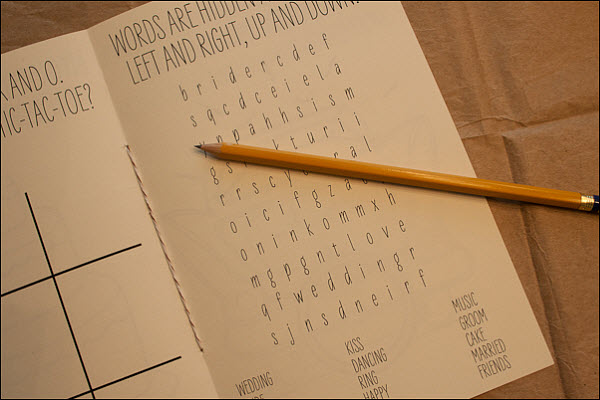 AND O.
TIC-TAC-TOE?
WORDS ARE HIDDEN
LEFT AND RIGHT, UP AND DOWN.
b r i d e r c d e f
s q c d c e i e l a
p a h h s i s m
g s k t u r i i
r r s c y r a l
o i c i f g z a
o n i n k o m m x h
m g p g n t l o v e
q f w e d d i n g r
s j n s d n e i r f
WEDDING
KISS
DANCING
RING
HAPPY
MUSIC
GROOM
CAKE
MARRIED
FRIENDS